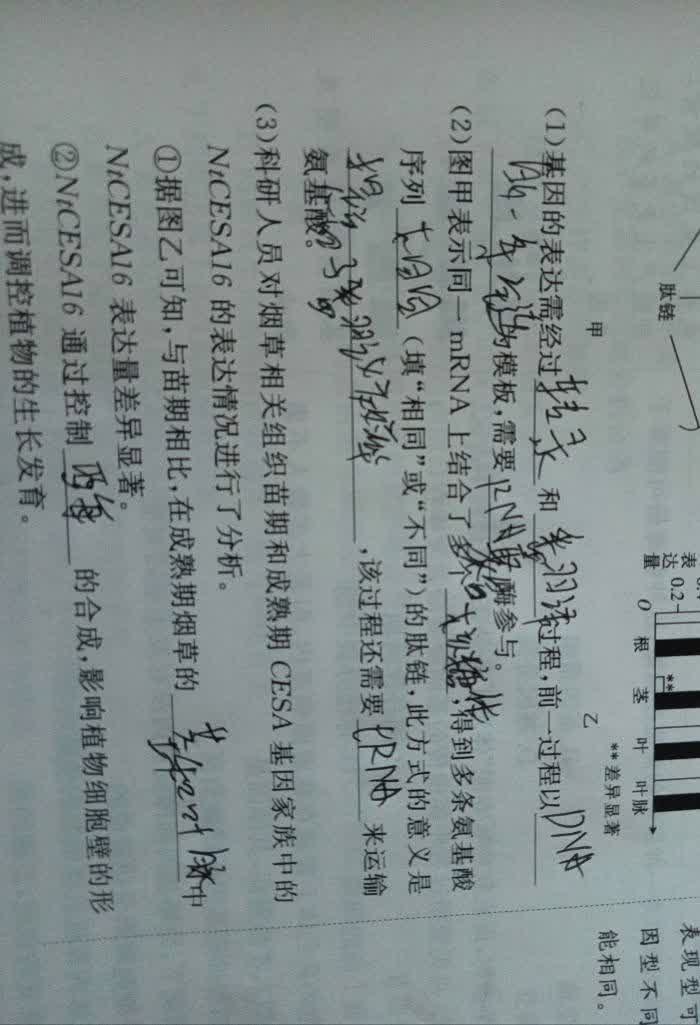 肽链
甲
表达量
0.2
O 根 茎 叶 叶脉
**
**差异显著
乙
(1)基因的表达需经过 转录 和 翻译 过程,前一过程以 DNA
的 一条链 的模板,需要 RNA聚合 酶参与。
(2)图甲表示同一 mRNA 上结合了多个 核糖体,得到多条氨基酸
序列 相同 (填“相同”或“不同”)的肽链,此方式的意义是
,该过程还需要 tRNA 来运输
氨基酸。
(3)科研人员对烟草相关组织苗期和成熟期 CESA 基因家族中的
NtCESA16 的表达情况进行了分析。
①据图乙可知,与苗期相比,在成熟期烟草的 茎和叶脉 中
NtCESA16 表达量差异显著。
②NtCESA16 通过控制 的合成,影响植物细胞壁的形
成,进而调控植物的生长发育。
表现型可
因型不同
能相同。